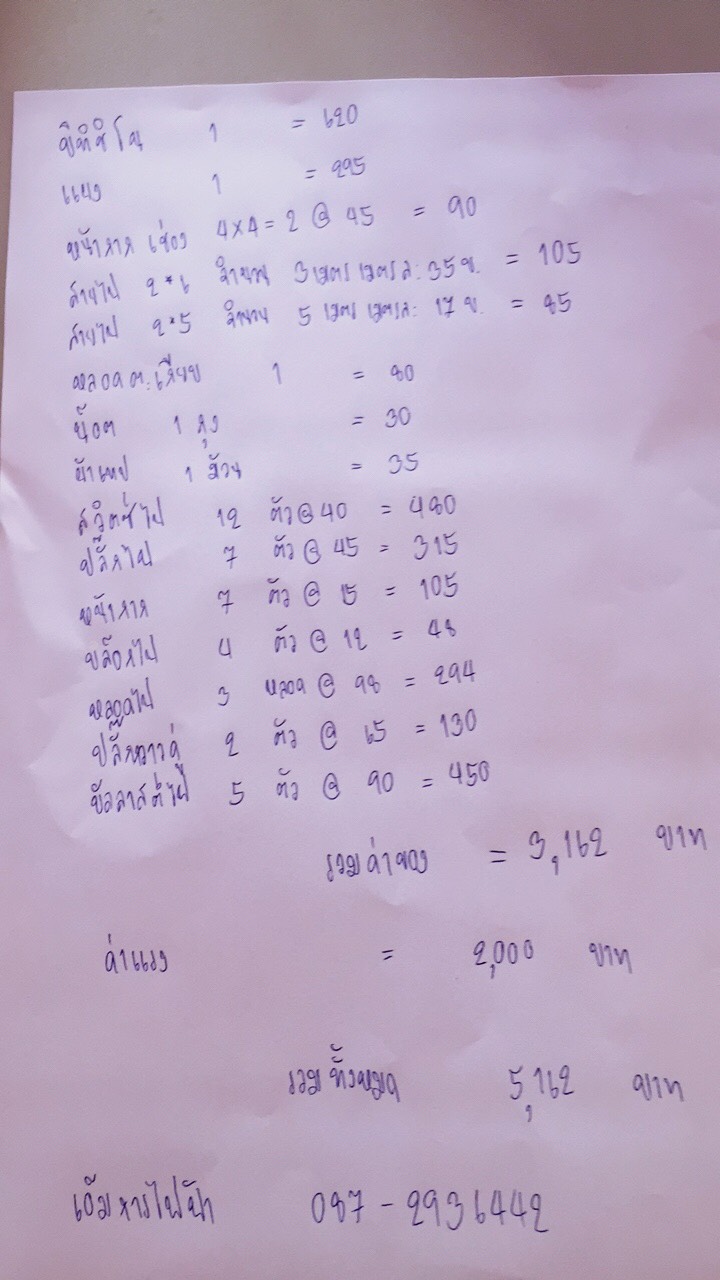 พีทีซีโอน 1 = 620
แผง 1 = 295
หน้ากาก เช่อง 4x4 = 2 @ 45 = 90
สายไฟ 2*6 จำนวน 3 เมตร เมตรละ 35 บ. = 105
สายไฟ 2*5 จำนวน 5 เมตร เมตรละ 17 บ. = 85
หลอดตะเกียบ 1 = 80
น็อต 1 ถุง = 30
ผ้าเทป 1 ม้วน = 35
สวิตซ์ไฟ 12 ตัว @ 40 = 480
ปลั๊กไฟ 7 ตัว @ 45 = 315
หน้ากาก 7 ตัว @ 15 = 105
บล็อกไฟ 4 ตัว @ 12 = 48
หลอดไฟ 3 หลอด @ 98 = 294
ปลั๊กกราวคู่ 2 ตัว @ 65 = 130
บัลลาสต์ไฟ 5 ตัว @ 90 = 450
รวมค่าของ = 3,162 บาท
ค่าแรง = 2,000 บาท
รวมทั้งหมด 5,162 บาท
เอ็มการไฟฟ้า 087-2936442